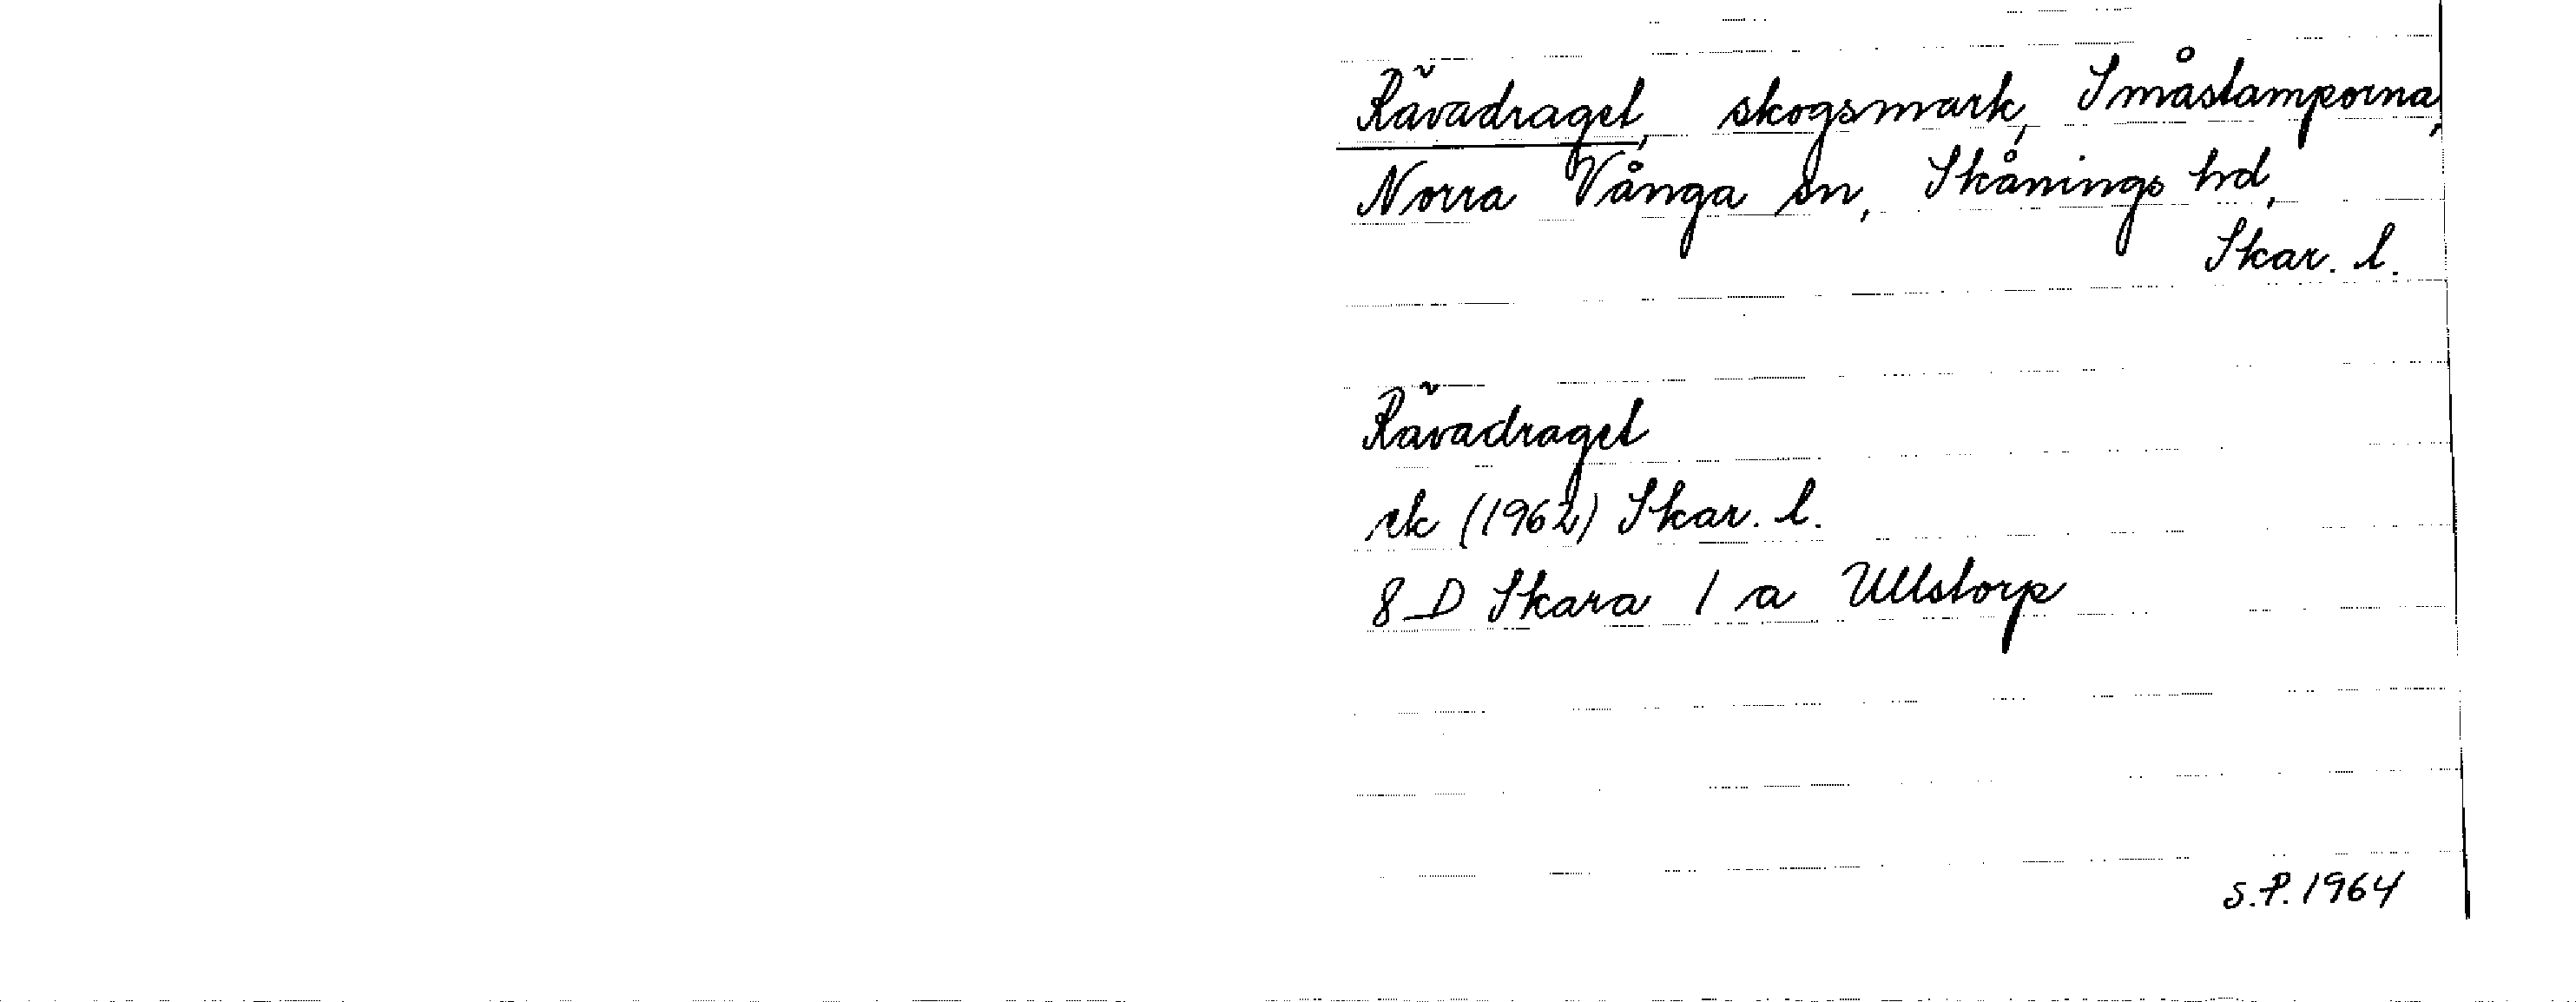 Rävadraget, skogsmark, Småstamporna,
Norra Vånga sn, Skånings hd,
Skar. l.
Rävadraget
rk (1962) Skar. l.
8 D Skara 1 a Ullstorp
S.P. 1964